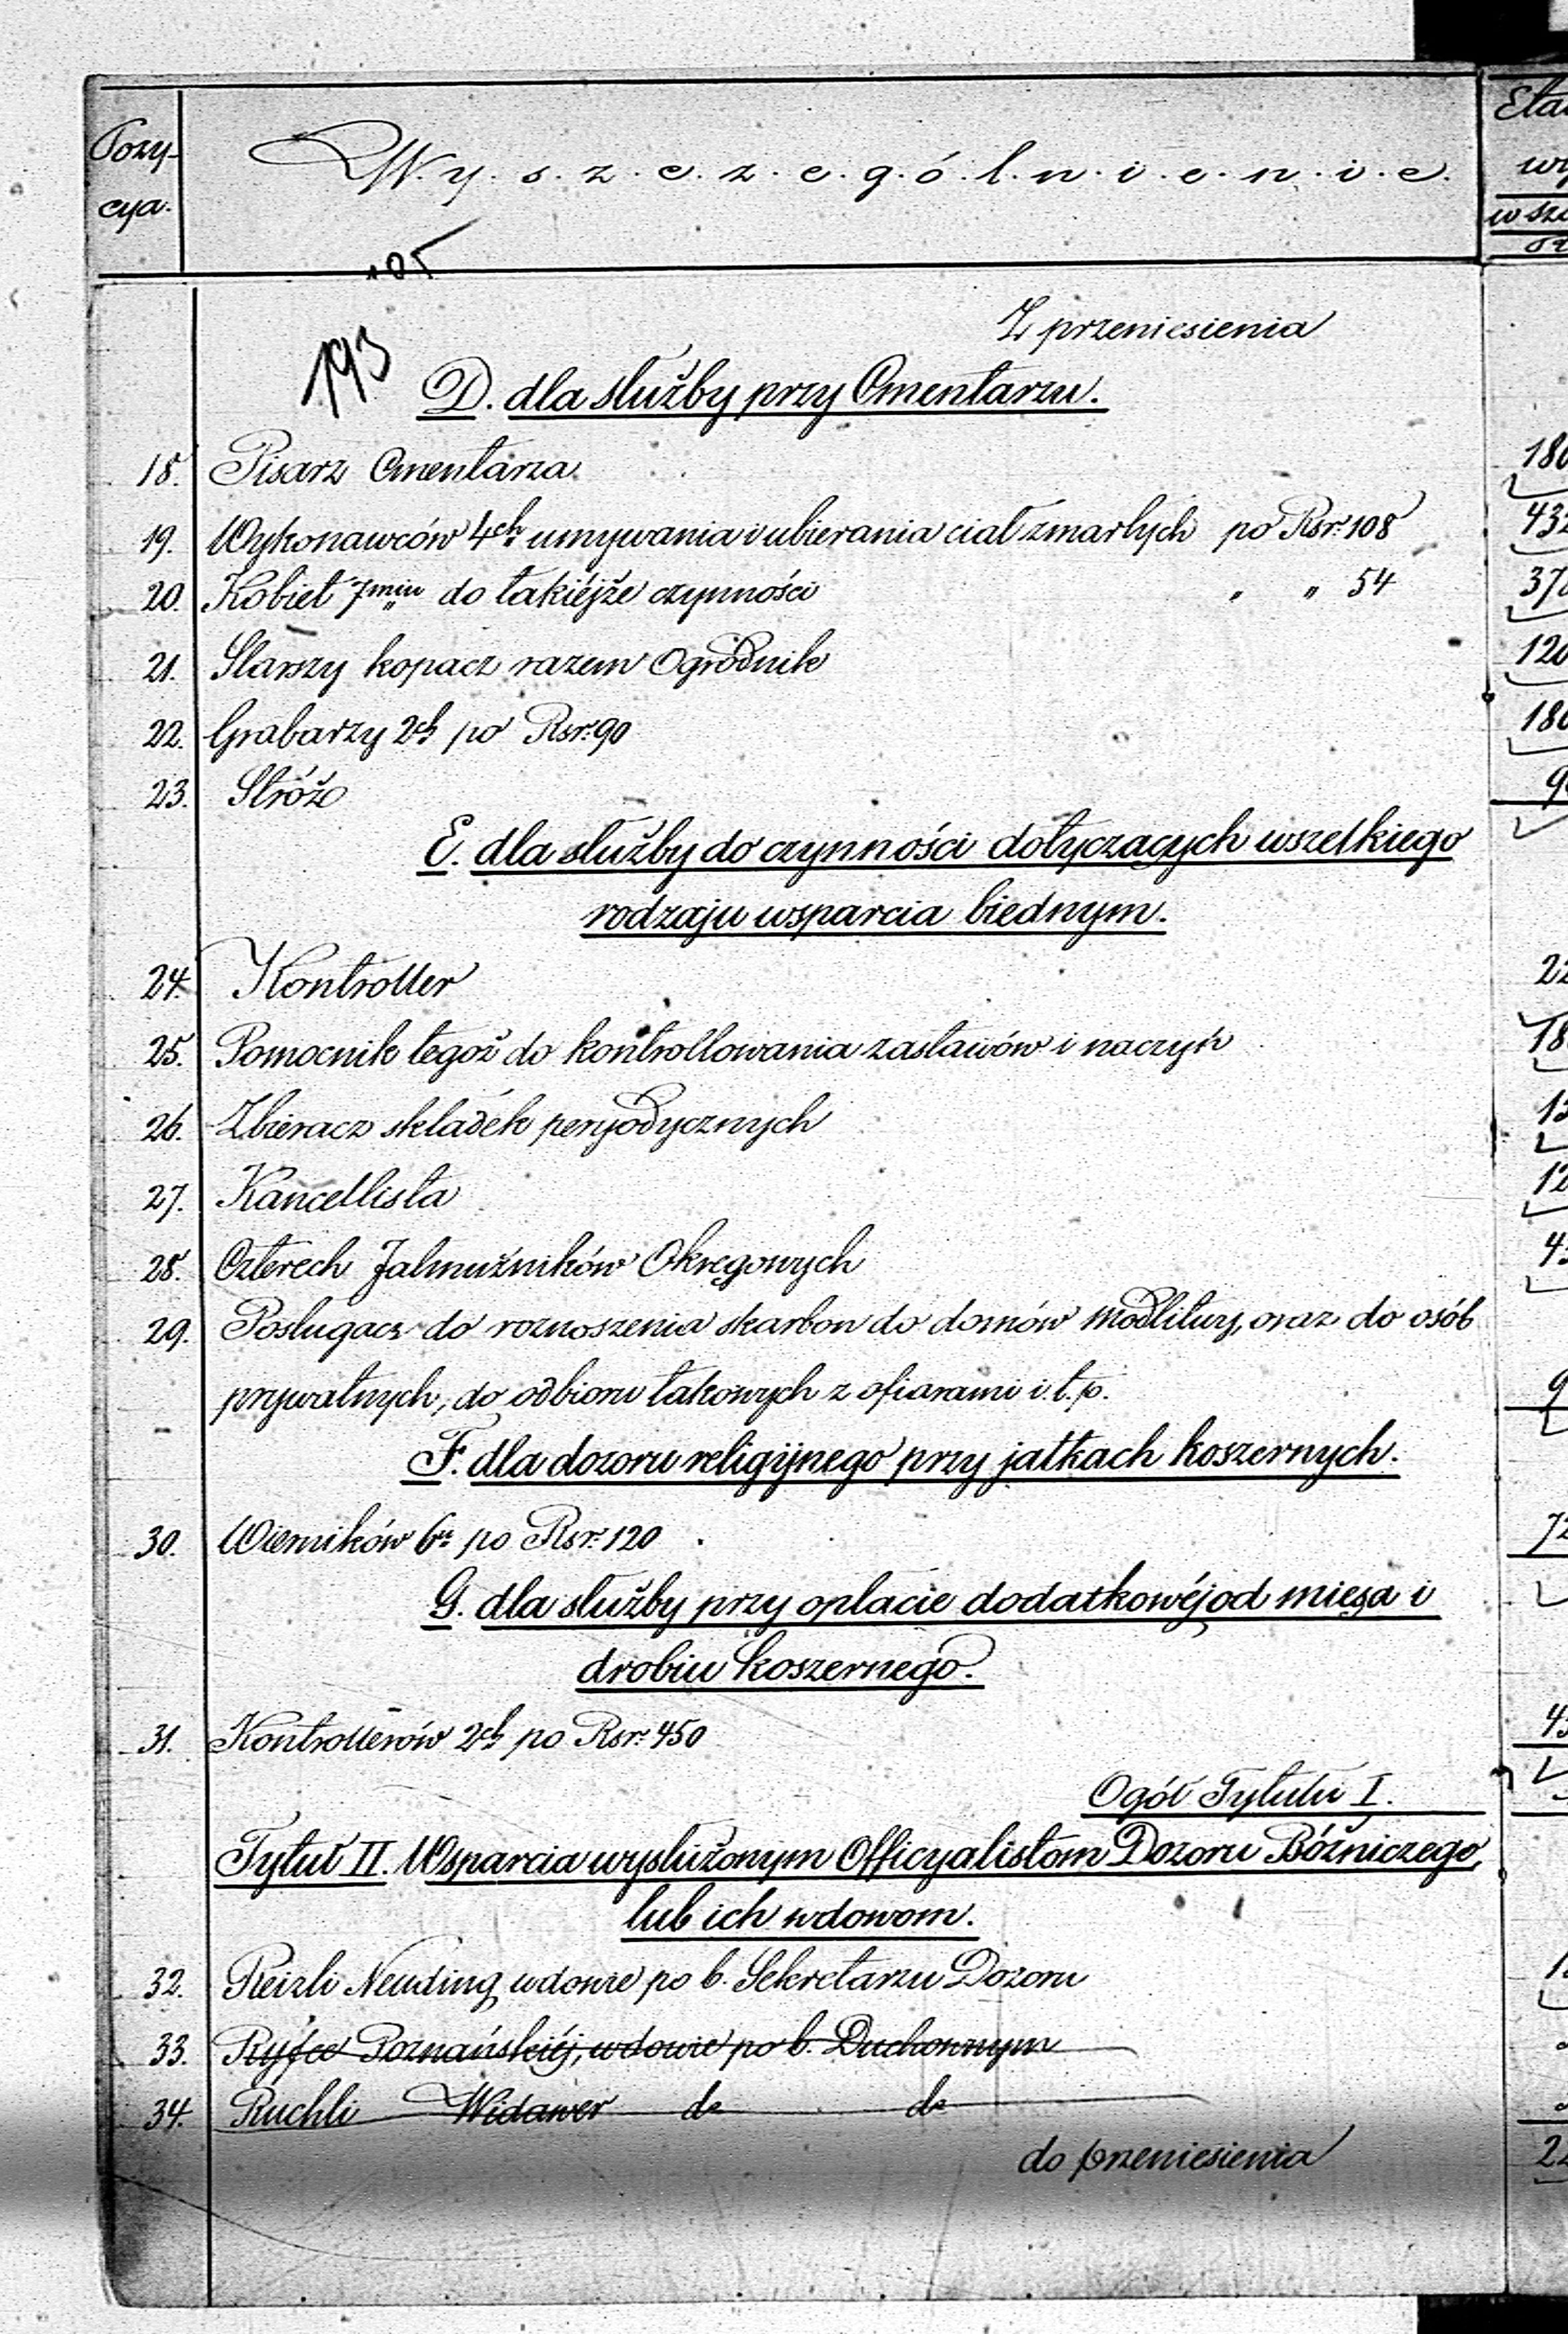 Pozy-
cya.
W.y.s.z.c.z.e.g.ó.l.n.i.e.n.i.e.
105
193
Z przeniesienia
D. dla służby przy Cmentarzu.
18. Pisarz Cmentarza
19. Wykonawców 4ch umywania i ubierania ciał zmarłych po Rsr. 108
20. Kobiet 7miu do takiéjże czynności " " 54
21. Starszy kopacz razem Ogrodnik
22. Grabarzy 2ch po Rsr. 90
23. Stróż
E. dla służby do czynności dotyczących wszelkiego
rodzaju wsparcia biednym.
24. Kontroller
25. Pomocnik tegoż do kontrollowania zastawów i naczyń
26. Zbieracz składek peryodycznych
27. Kancellista
28. Czterech Jałmużników Okręgowych
29. Posługacz do roznoszenia skarbon do domów modlitwy, oraz do osób
prywatnych, do odbioru takowych z ofiarami i.t.p.
F. dla dozoru religijnego przy jatkach koszernych.
30. Wierników 6u po Rsr. 120
G. dla służby przy opłacie dodatkowéj od mięsa i
drobiu koszernego.
31. Kontrollerów 2ch po Rsr. 450
Ogół Tytułu I.
Tytuł II. Wsparcia wysłużonym Officyalistom Dozoru Bóżniczego,
lub ich wdowom.
32. Reizli Neuding wdowie po b. Sekretarzu Dozoru
33. Ryfce Poznańskiéj, wdowie po b. Duchownym
34. Ruchli Widawer do do
do przeniesienia